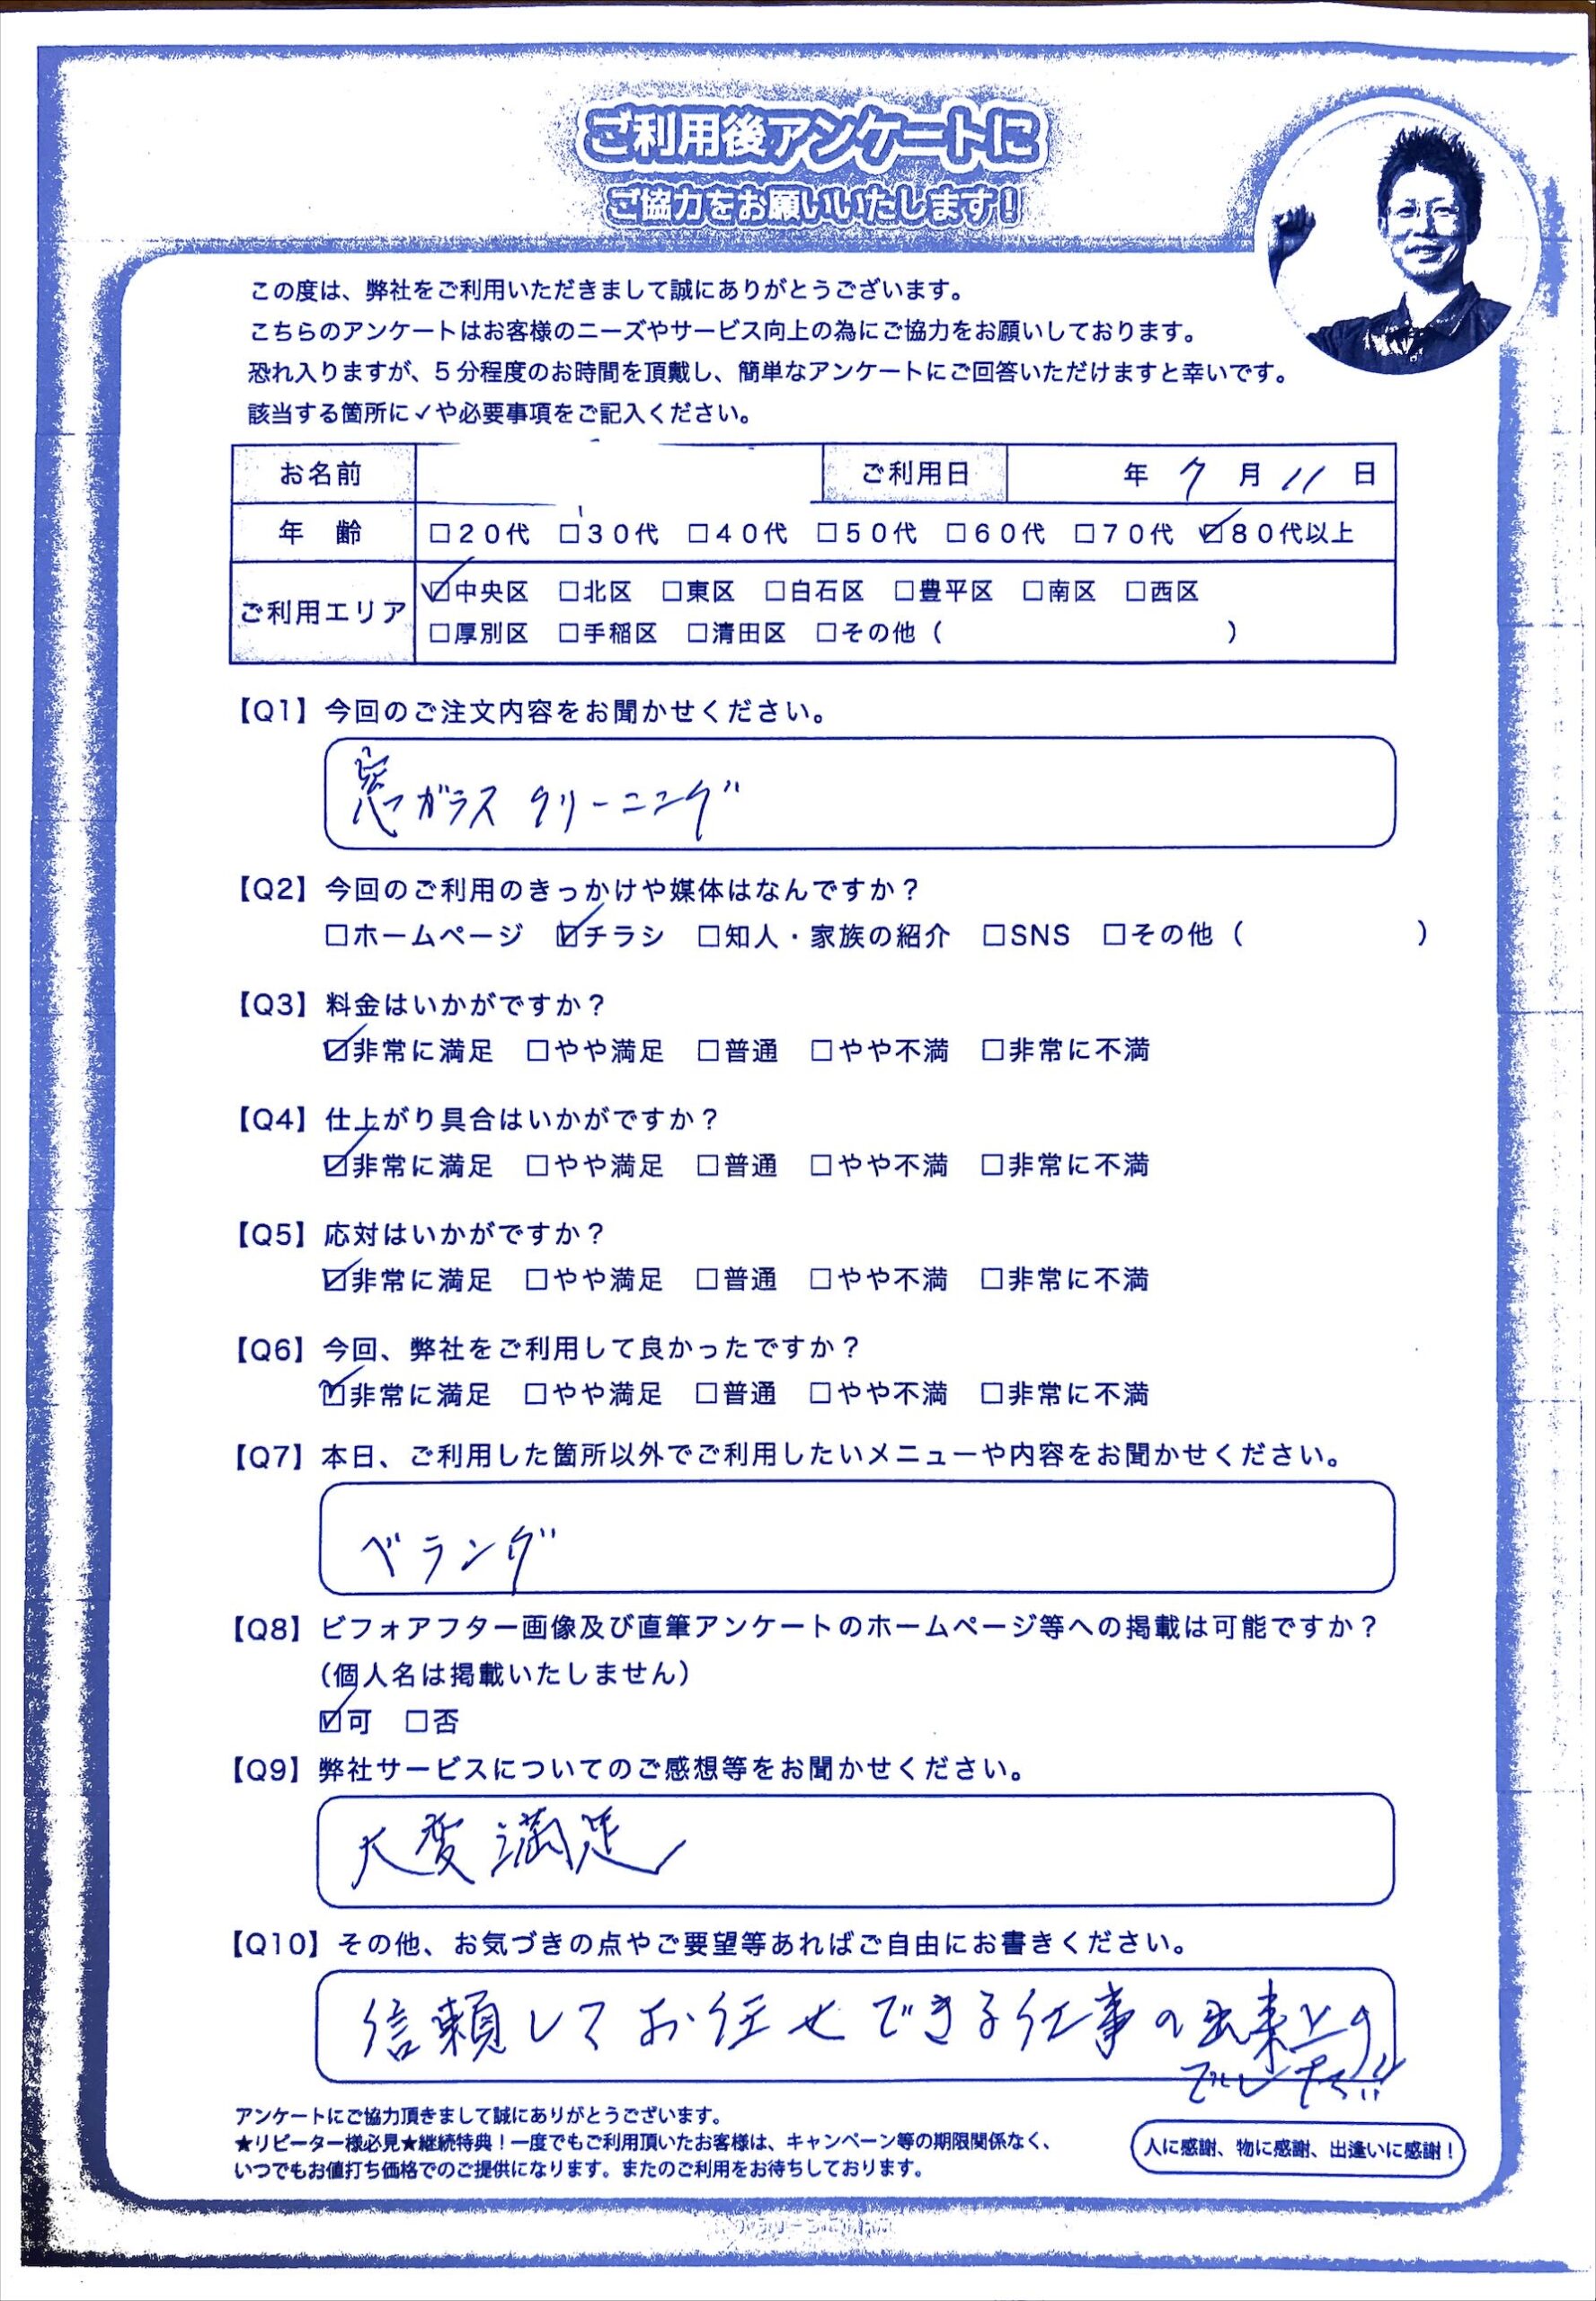 ご利用後アンケートに
ご協力をお願いいたします!
この度は、弊社をご利用いただきまして誠にありがとうございます。
こちらのアンケートはお客様のニーズやサービス向上の為にご協力をお願いしております。
恐れ入りますが、5分程度のお時間を頂戴し、簡単なアンケートにご回答いただけますと幸いです。
該当する箇所に✓や必要事項をご記入ください。
お名前 ご利用日 年 7 月 11 日
年 齢 □20代 □30代 □40代 □50代 □60代 □70代 ☑80代以上
ご利用エリア ☑中央区 □北区 □東区 □白石区 □豊平区 □南区 □西区
□厚別区 □手稲区 □清田区 □その他( )
【Q1】今回のご注文内容をお聞かせください。
窓ガラスクリーニング
【Q2】今回のご利用のきっかけや媒体はなんですか?
□ホームページ ☑チラシ □知人・家族の紹介 □SNS □その他( )
【Q3】料金はいかがですか?
☑非常に満足 □やや満足 □普通 □やや不満 □非常に不満
【Q4】仕上がり具合はいかがですか?
☑非常に満足 □やや満足 □普通 □やや不満 □非常に不満
【Q5】応対はいかがですか?
☑非常に満足 □やや満足 □普通 □やや不満 □非常に不満
【Q6】今回、弊社をご利用して良かったですか?
☑非常に満足 □やや満足 □普通 □やや不満 □非常に不満
【Q7】本日、ご利用した箇所以外でご利用したいメニューや内容をお聞かせください。
ベランダ
【Q8】ビフォアフター画像及び直筆アンケートのホームページ等への掲載は可能ですか?
(個人名は掲載いたしません)
☑可 □否
【Q9】弊社サービスについてのご感想等をお聞かせください。
大変満足
【Q10】その他、お気づきの点やご要望等あればご自由にお書きください。
信頼してお任せできる仕事の出来上り
でした!!
アンケートにご協力頂きまして誠にありがとうございます。
★リピーター様必見★継続特典!一度でもご利用頂いたお客様は、キャンペーン等の期限関係なく、
いつでもお値打ち価格でのご提供になります。またのご利用をお待ちしております。
人に感謝、物に感謝、出逢いに感謝!